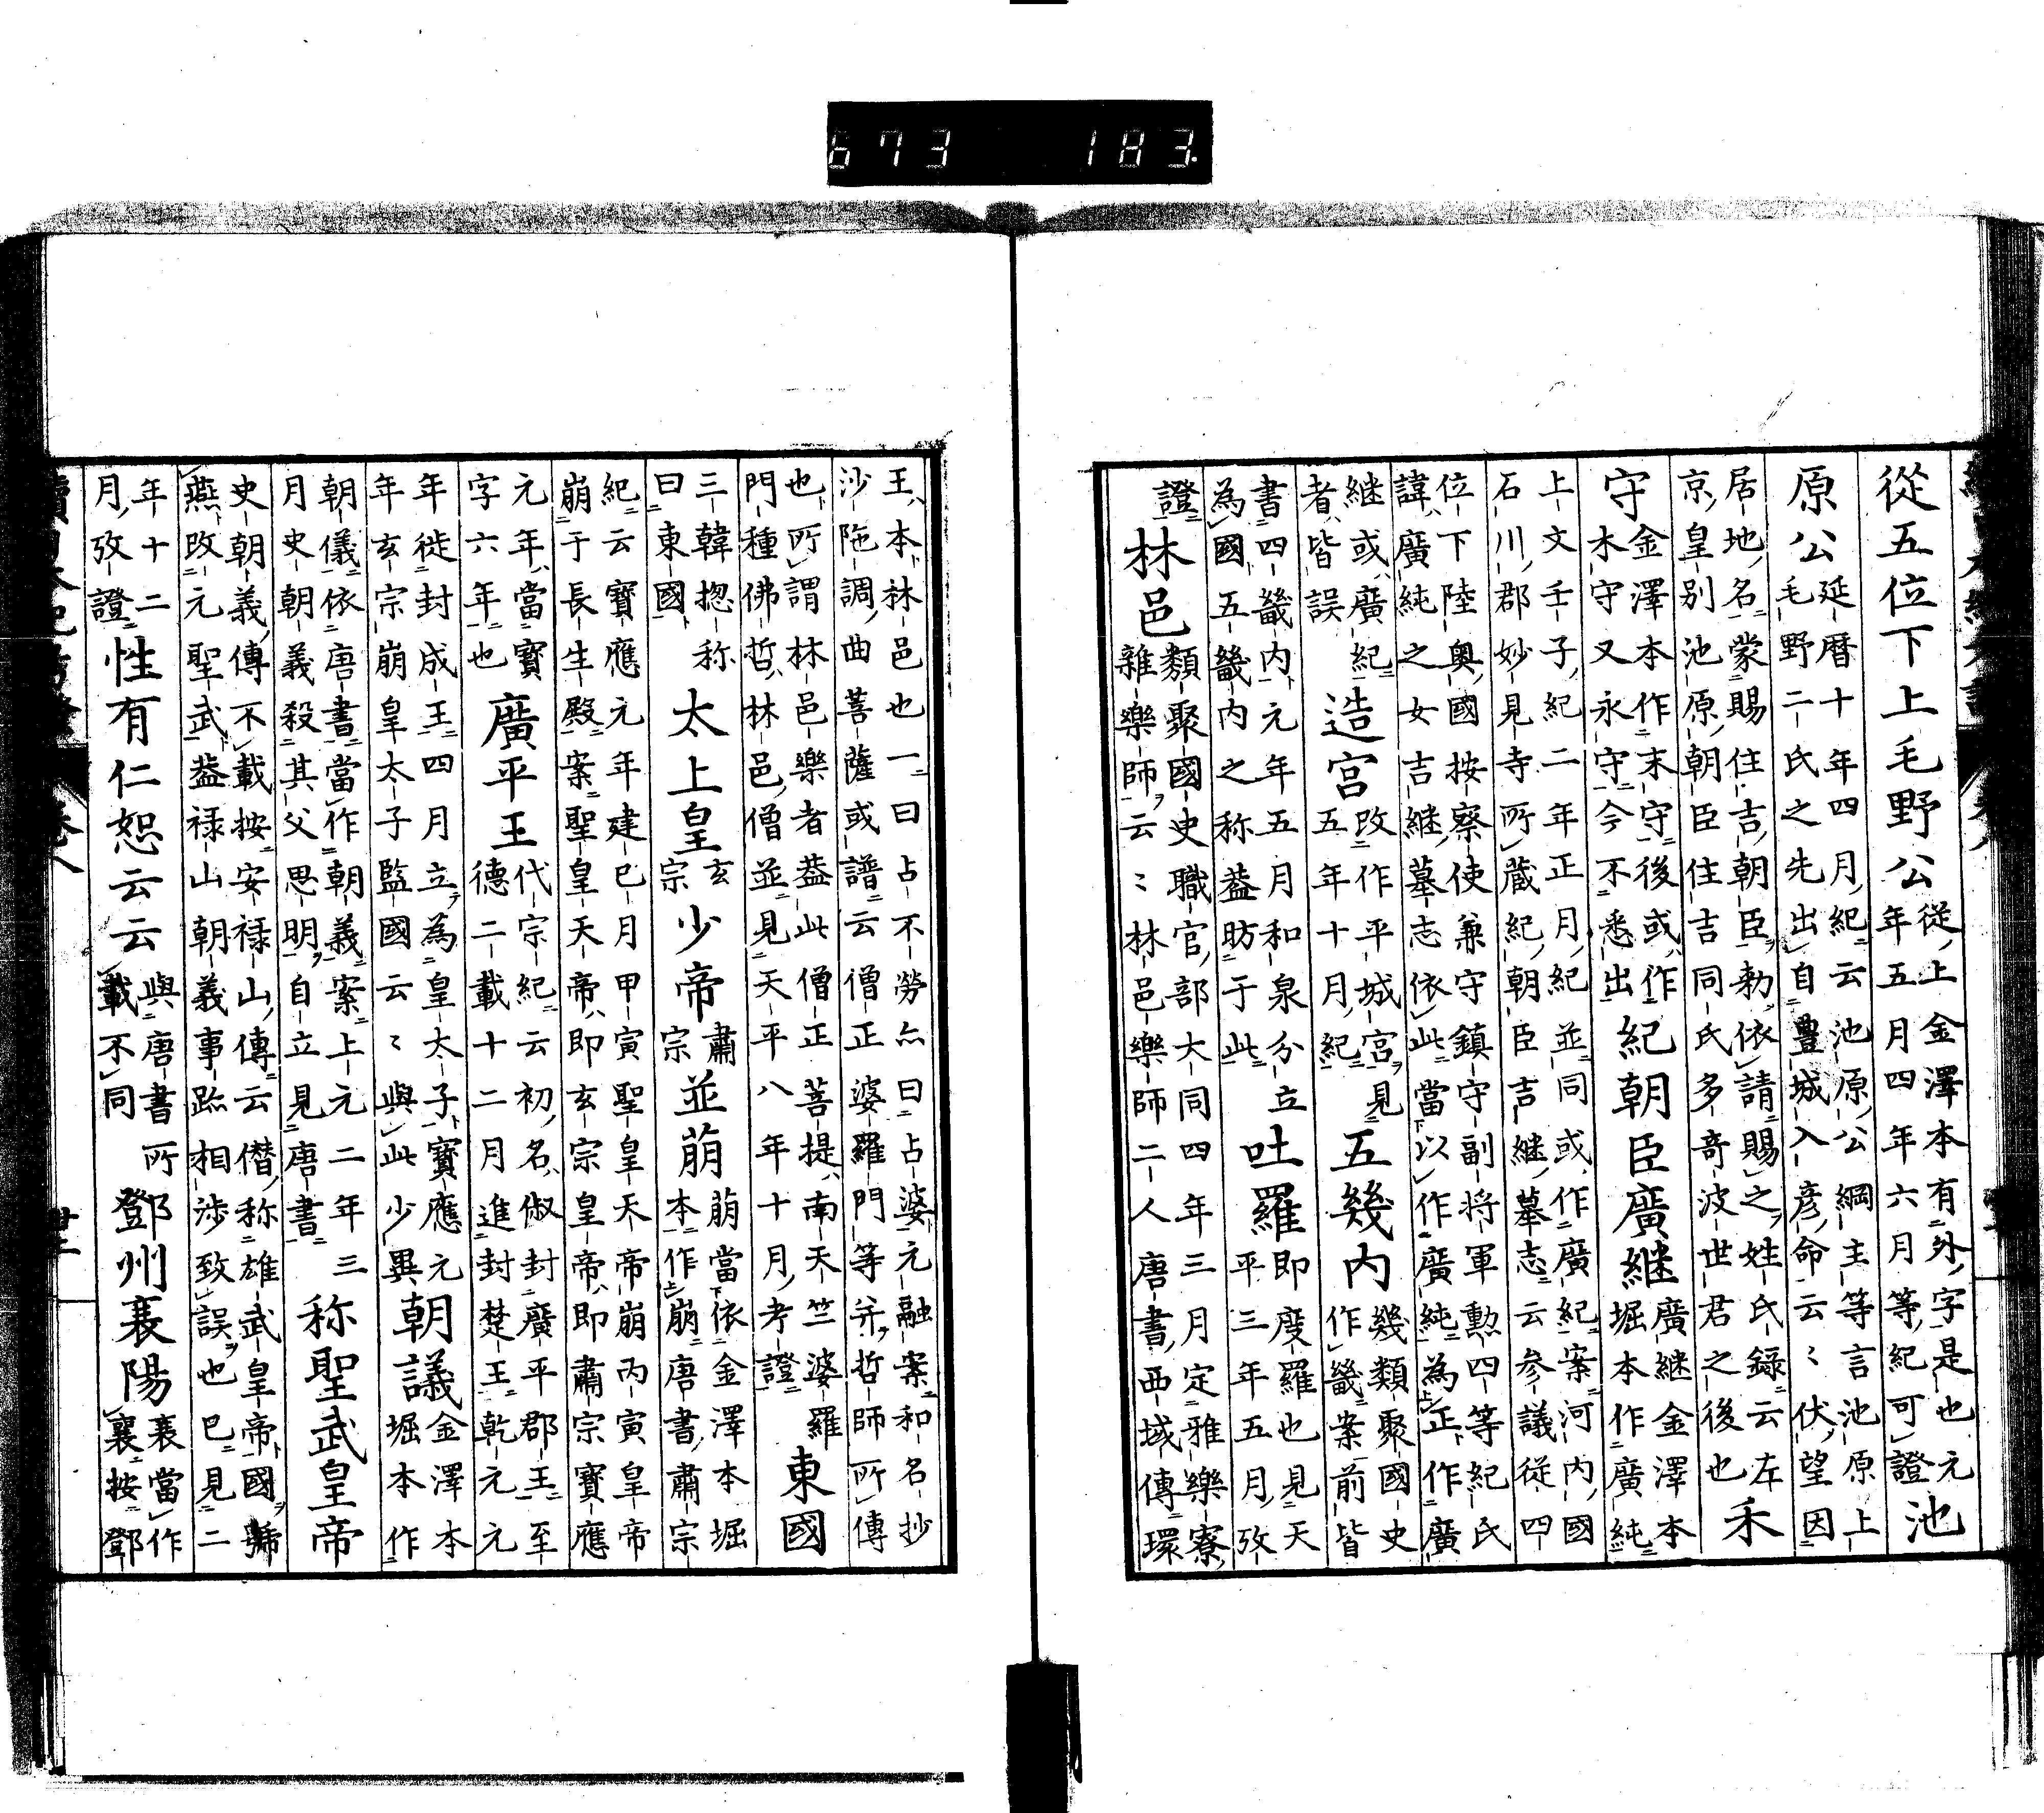 從五位下上毛野公
從上金澤本有外字是也元
年五月四年六月等紀可證
池
原公
延暦十年四月紀云池原公綱主等言池原上
毛野二氏之先出自豊城入彦命云〻伏望因
居地名蒙賜住吉朝臣勅依請賜之姓氏録云左
京皇別池原朝臣住吉同氏多奇波世君之後也
禾
守
金澤本作末守後或作
木守又永守今不悉出
紀朝臣廣継
廣継金澤本
堀本作廣純
上文壬子紀二年正月紀並同或作廣紀案河内國
石川郡妙見寺所蔵紀朝臣吉継墓志云参議従四
位下陸奥國按察使兼守鎮守副将軍勲四等紀氏
諱廣純之女吉継墓志依此當以作廣純為正作廣
継或廣紀
者皆誤
造宮
改作平城宮見
五年十月紀
五幾内
幾類聚國史
作畿案前皆
書四畿内元年五月和泉分立
為國五畿内之称葢昉于此
吐羅
即度羅也見天
平三年五月攷
證
林邑
類聚國史職官部大同四年三月定雅樂寮
雜樂師云〻林邑樂師二人唐書西域傳環
王本林邑也一曰占不勞亦曰占婆元融案和名抄
沙陁調曲菩薩或譜云僧正婆羅門等并哲師所傳
也所謂林邑樂者葢此僧正菩提南天竺婆羅
門種佛哲林邑僧並見天平八年十月考證
東國
三韓揔称
曰東國
太上皇
玄
宗
少帝
肅
宗
並萠
萠當依金澤本堀
本作崩唐書肅宗
紀云寶應元年建巳月甲寅聖皇天帝崩丙寅皇帝
崩于長生殿案聖皇天帝即玄宗皇帝即肅宗寶應
元年當寶
字六年也
廣平王
代宗紀云初名俶封廣平郡王至
德二載十二月進封楚王乾元元
年徙封成王四月立為皇太子寶應元
年玄宗崩皇太子監國云〻與此少異
朝議
金澤本
堀本作
朝儀依唐書當作朝義案上元二年三
月史朝義殺其父思明自立見唐書
称聖武皇帝
史朝義傳不載按安禄山傳云僣称雄武皇帝國號
燕改元聖武葢禄山朝義事跡相渉致誤也巳見二
年十二
月攷證
性有仁恕云云
與唐書所
載不同
鄧州袠陽
袠當作
襄按鄧